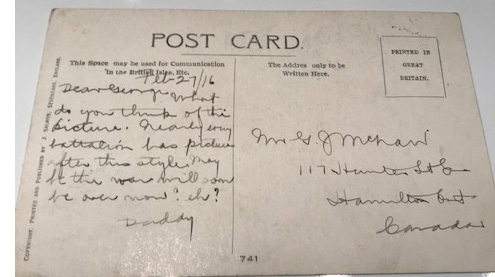 POST CARD.
This Space may be used for Communication
in the British Isles, Etc.
The Addres only to be
Written Here.
PRINTED IN
GREAT
BRITAIN.
Feb 27/16
Dear George What
do you think of this
picture. Nearly every
battalion has picture
after this style. May
be the war will soon
be over now? eh?
Daddy
Mr G. J.
117 Hunter St E
Hamilton Ont
Canada
741
COPYRIGHT, PRINTED AND PUBLISHED BY J. SALMON, SEVENOAKS, ENGLAND